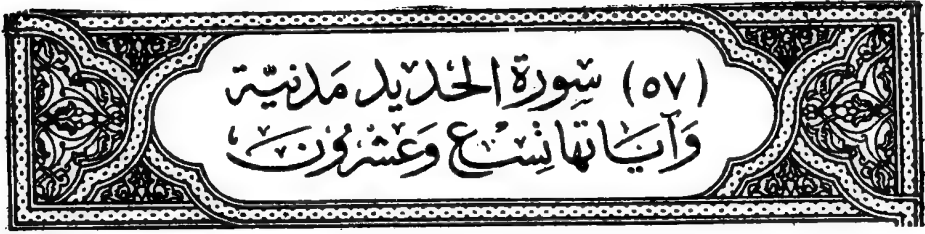 (٥٧) سورة الحديد مدنية
وآياتها تسع وعشرون